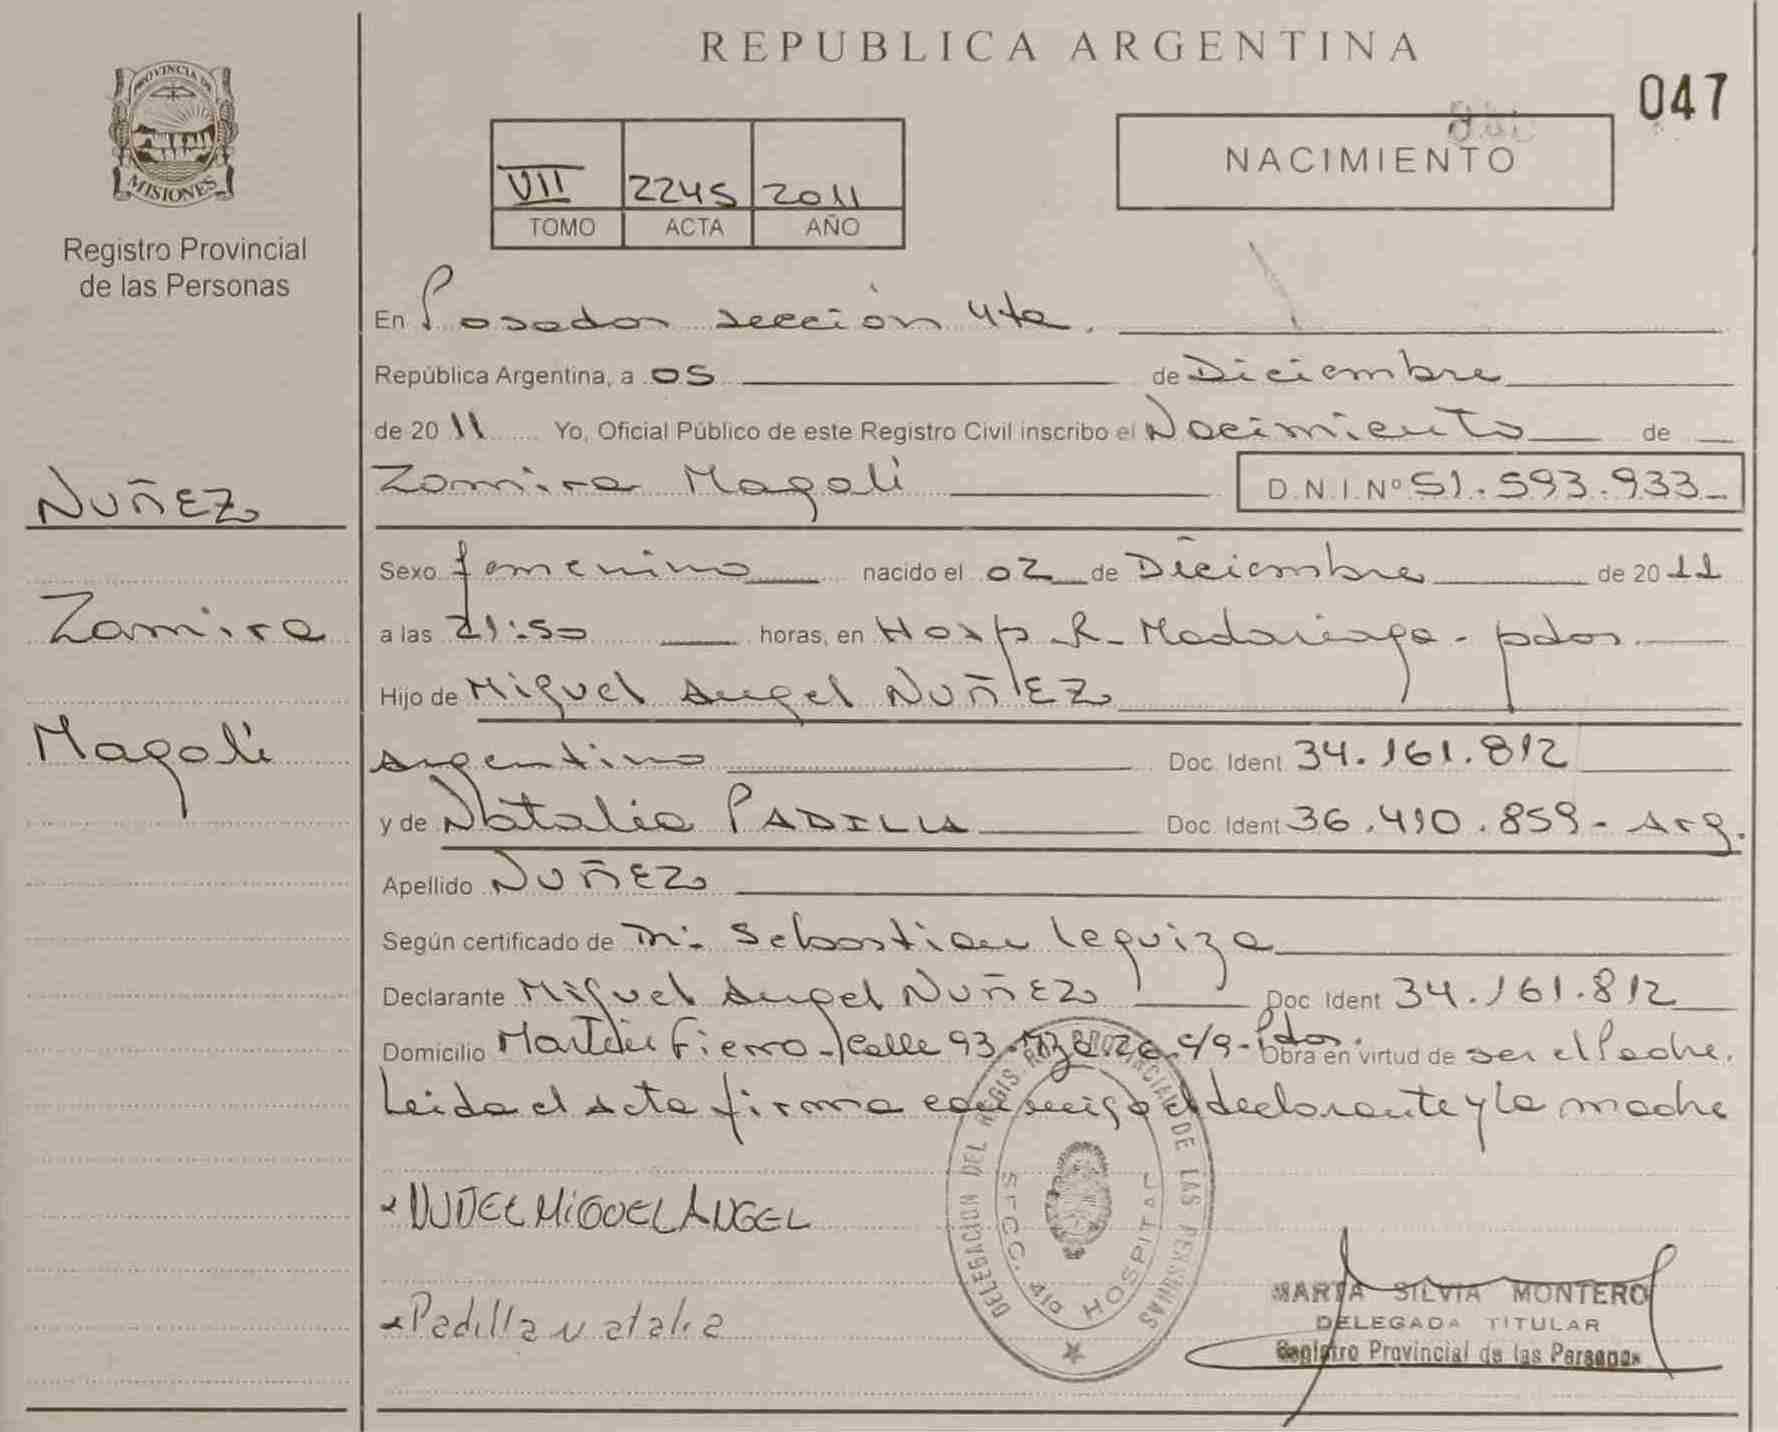 REPUBLICA ARGENTINA
047
PROVINCIA DE
MISIONES
Registro Provincial
de las Personas
VII 2245 2011
TOMO ACTA AÑO
NACIMIENTO
En Posadas sección 4ta.
República Argentina, a 05 de Diciembre
de 2011 Yo, Oficial Público de este Registro Civil inscribo el Nacimiento de
Zamira Magali D.N.I.Nº 51.593.933
NUÑEZ
Zamira
Magali
Sexo femenino nacido el 02 de Diciembre de 2011
a las 21:50 horas, en Hosp R. Madariaga - pdas.
Hijo de Miguel Angel NUÑEZ
Argentino Doc. Ident 34.161.812
y de Natalia PADILLA Doc. Ident 36.410.859 - Arg.
Apellido NUÑEZ
Según certificado de Sebastian Leguiza
Declarante Miguel Angel NUÑEZ Doc Ident 34.161.812
Domicilio Martin Fierro - Calle 93 - c/9 - Pdas. Obra en virtud de ser el Padre.
Leida el Acta firma conmigo el declarante y la madre
NUÑEZ MIGUEL ANGEL
Padilla Natalia
DELEGACION DEL REGISTRO PROVINCIAL DE LAS PERSONAS
SECC. 4ta HOSPITAL
MARTA SILVIA MONTERO
DELEGADA TITULAR
Registro Provincial de las Personas